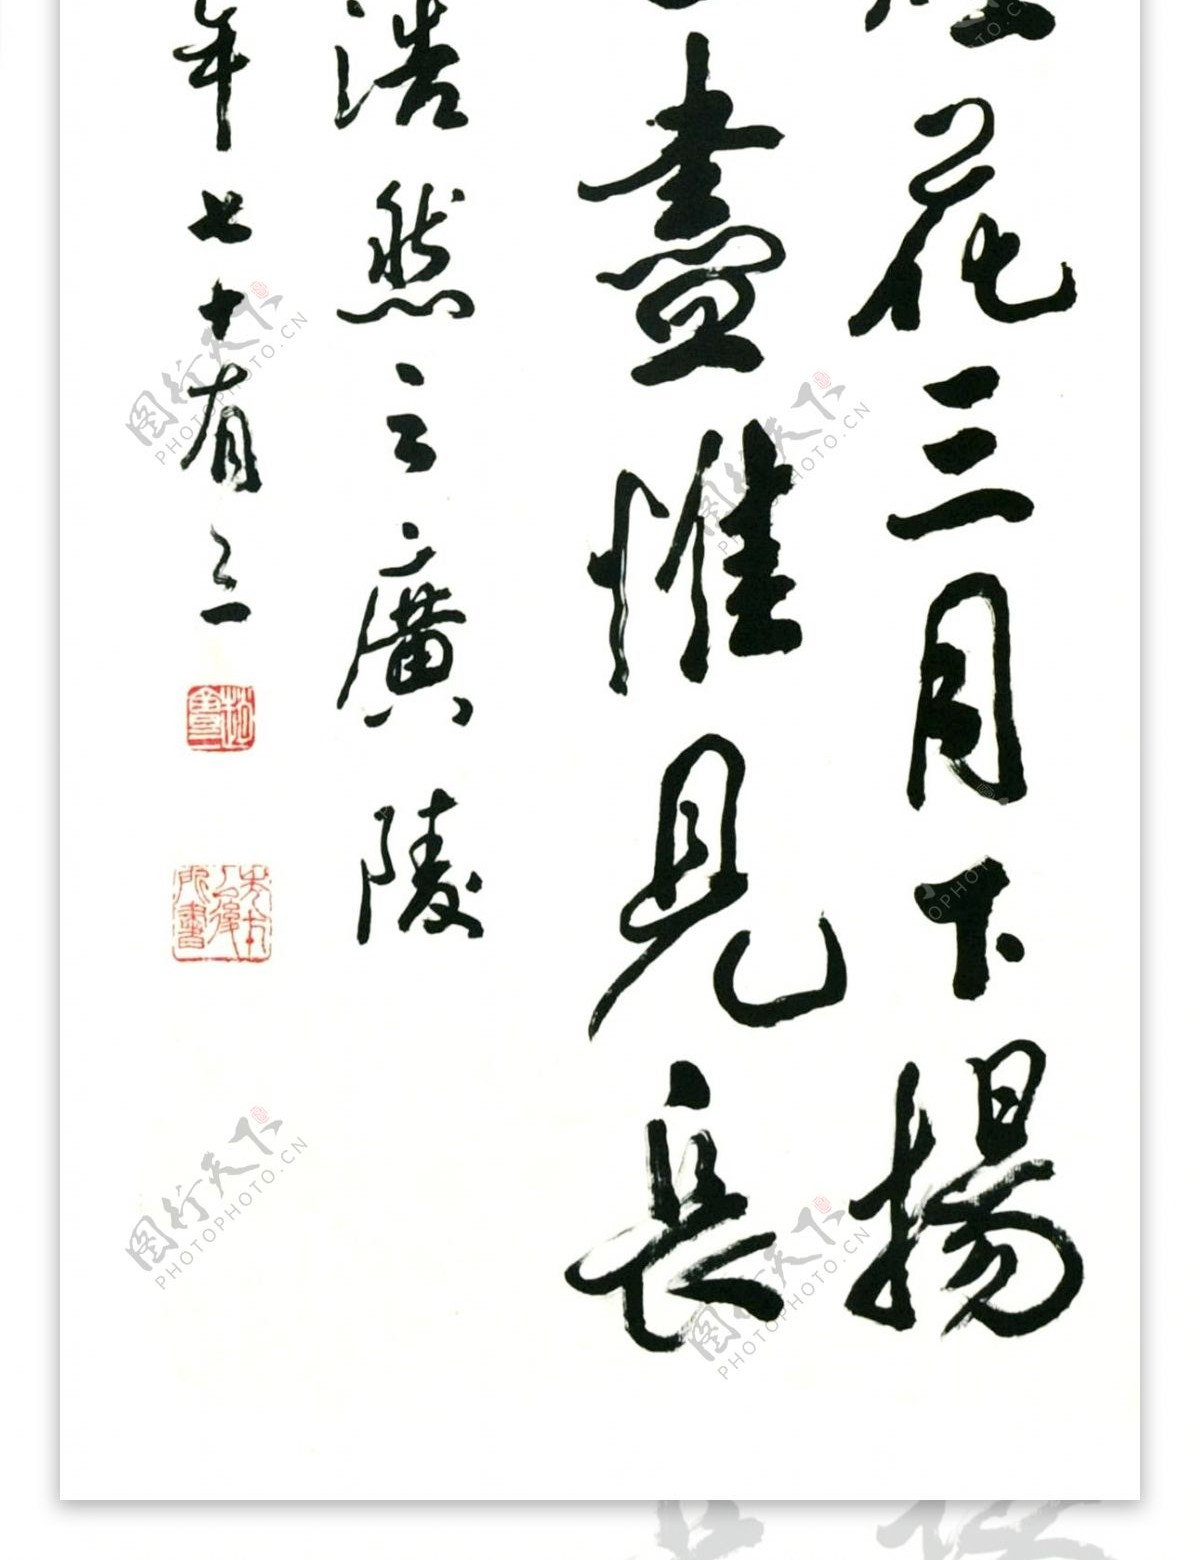 煙花三月下揚
盡惟見長
浩然之廣陵
年七十有三
图行天下
PHOTOPHOTO.CN
图行天下
PHOTOPHOTO.CN
图行天下
PHOTOPHOTO.CN
图行天下
PHOTOPHOTO.CN